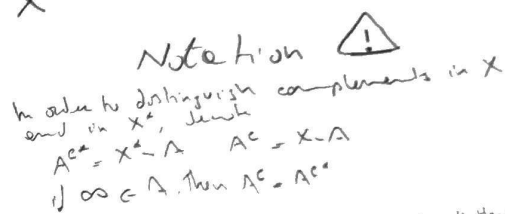 X
Notation
In order to distinguish complements in X
and in X*, denote
A^{c*} = X* - A A^c = X - A
if ∞ ∈ A, then A^c = A^{c*}